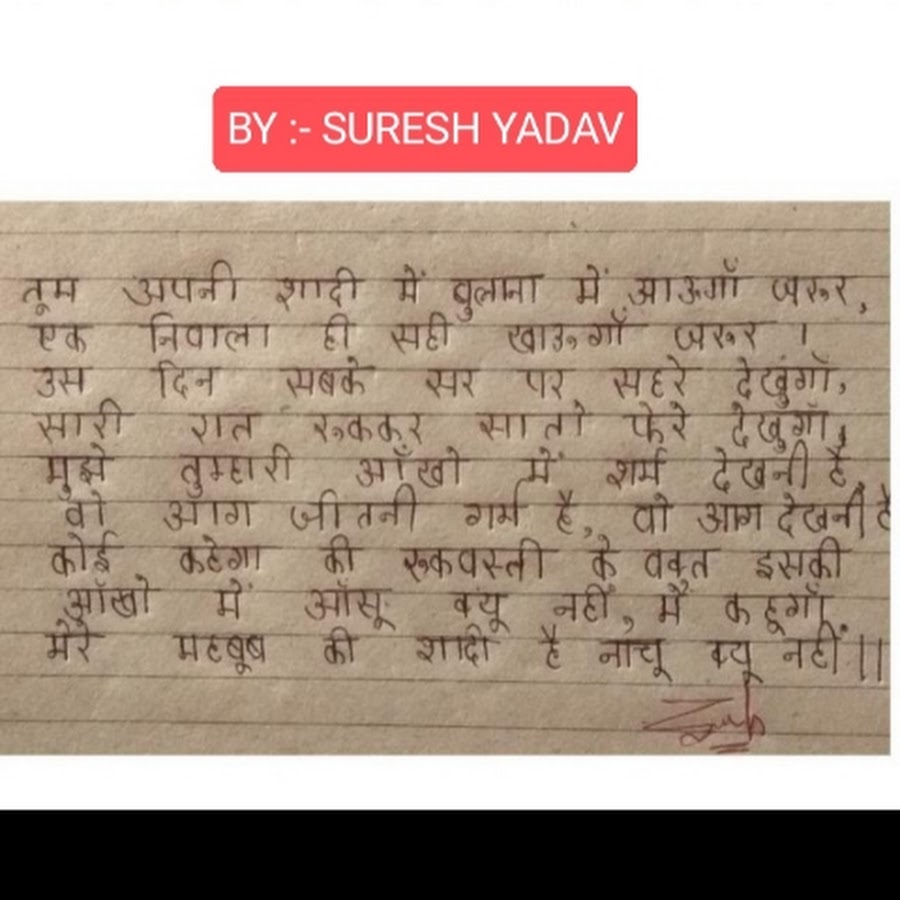 BY :- SURESH YADAV
तूम अपनी शादी में बुलाना में आऊगाँ जरुर,
एक निवाला ही सही खाऊगाँ जरुर ।
उस दिन सबके सर पर सहरे देखुंगाँ,
सारी रात रुककर सातो फेरे देखुगाँ,
मुझे तुम्हारी आँखो में शर्म देखनी है,
वो आग जीतनी गर्म है, वो आग देखनी है
कोई कहेगा की रुकवस्ती के वक्त इसकी
आँखो में आँसू क्यू नहीं, मैं कहूगाँ,
मेरे महबूब की शादी है नाचू क्यू नहीं ||